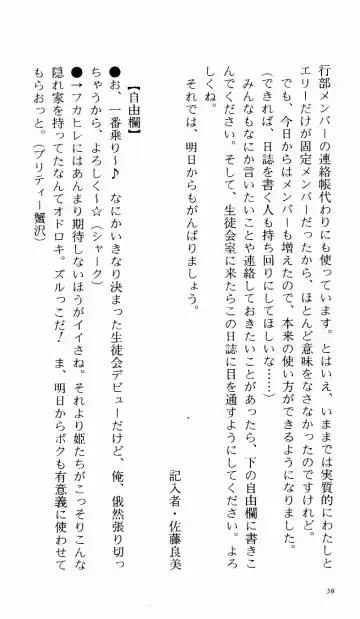 行部メンバーの連絡帳代わりにも使っています。とはいえ、いままでは実質的にわたしと
エリーだけが固定メンバーだったから、ほとんど意味をなさなかったのですけれど。
でも、今日からはメンバーも増えたので、本来の使い方ができるようになりました。
(できれば、日誌を書く人も持ち回りにしてほしいな……)
みんなもなにか言いたいことや連絡しておきたいことがあったら、下の自由欄に書きこ
んでください。そして、生徒会室に来たらこの日誌に目を通すようにしてください。よろ
しくね。
それでは、明日からもがんばりましょう。
記入者・佐藤良美
【自由欄】
●お、一番乗り〜♪ なにかいきなり決まった生徒会デビューだけど、俺、俄然張り切っ
ちゃうから、よろしく〜☆(シャーク)
●→フカヒレにはあんまり期待しないほうがイイさね。それより姫たちがこっそりこんな
隠れ家を持ってたなんてオドロキ。ズルっこだ! ま、明日からボクも有意義に使わせて
もらおっと。(プリティー蟹沢)
58